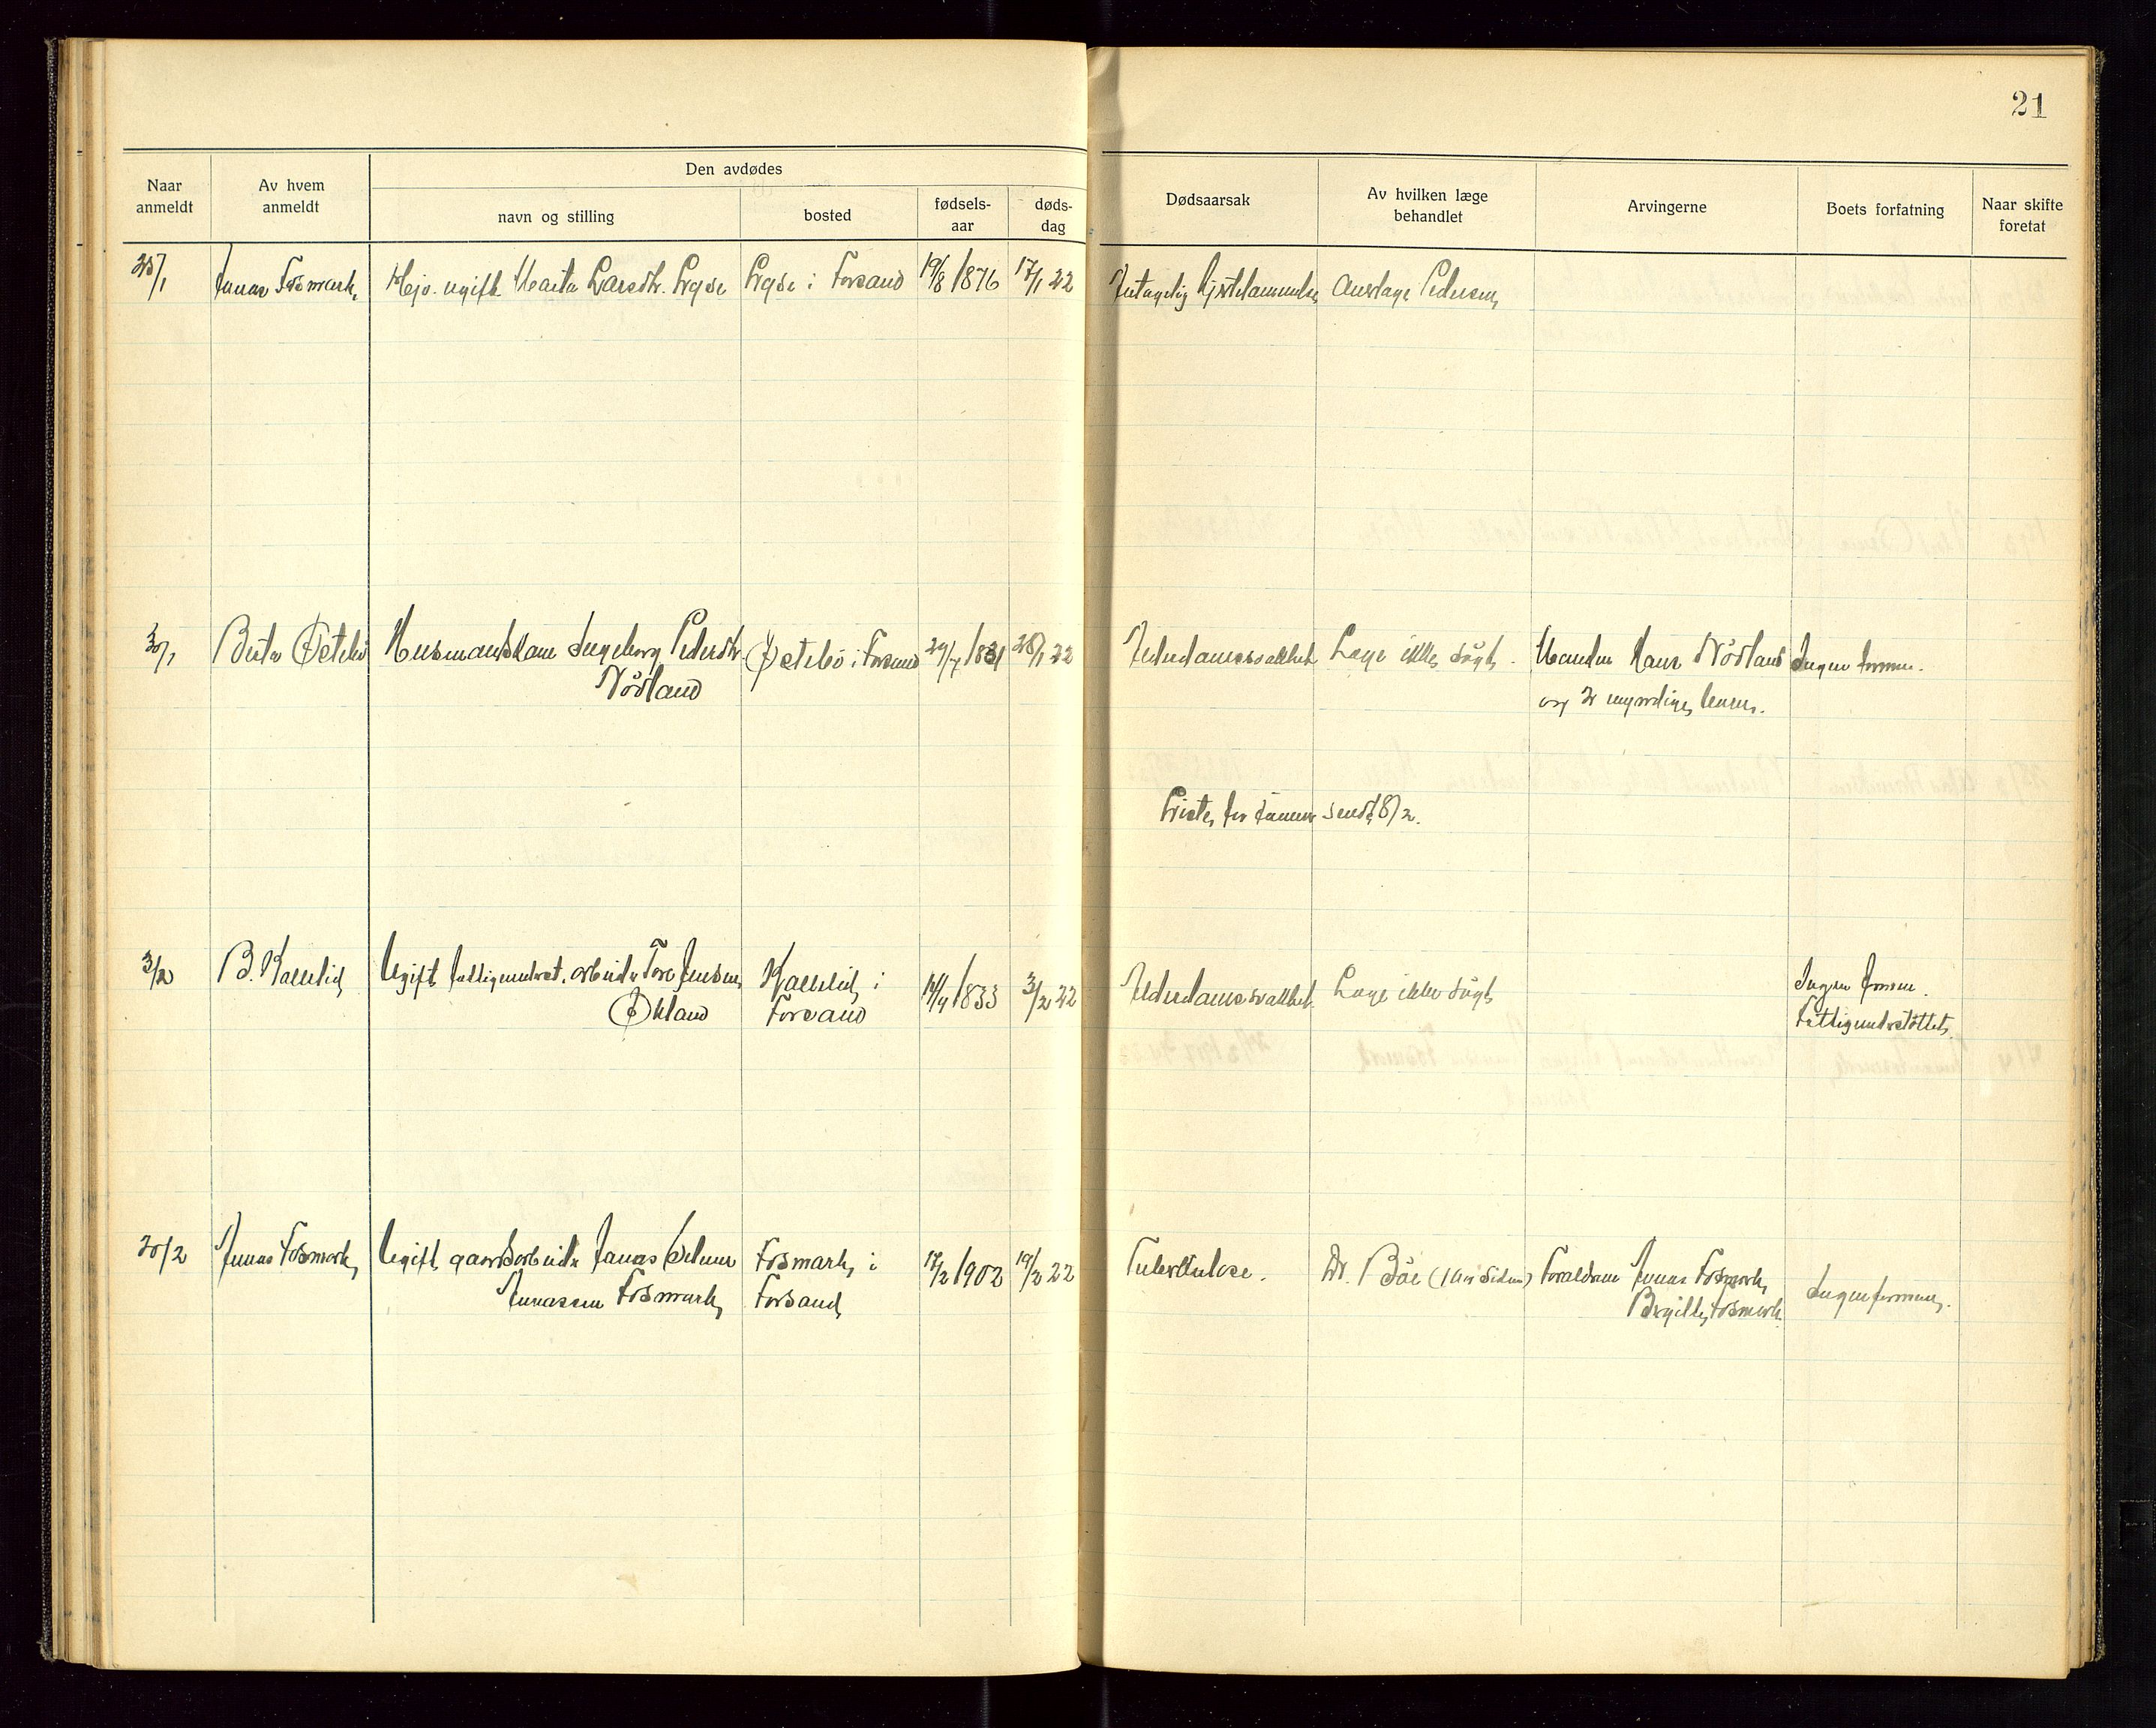 21
Den avdødes
Naar anmeldt
Av hvem anmeldt
navn og stilling
bosted
fødsels- aar
døds- dag
Dødsaarsak
Av hvilken læge behandlet
Arvingerne
Boets forfatning
Naar skifte foretat
25/1 Jonas Fosmark, Hejo. ugift Marta Larsdtr. Lyse Lyse i Forsand 19/8 1876 17/1 22
Pedersen
30/1 Berta Østebö Husmandskone Ingeborg Pedersdtr. Östebö i Forsand 29/7 1831 28/1 22 Alderdomssvakhet Læge ikke sögt. Manden Hans Nödland Ingen formue.
Nödland og 2 myndige
Liste for samme sendt 8/2.
3/2 B. Kallelid Ugift fattigunderst. arbeider Tore Jensen Kallelid i 14/4 1833 3/2 22 Alderdomssvakhet Læge ikke sögt Ingen formue.
Økland Forsand Fattigunderstöttet
20/2 Jonas Fosmark, Ugift gaardsarbeider Jonas Fosmark i 17/2 1902 19/2 22 Tuberkulose. Dr. Böe Forældrene Jonas Fosmark,
Jonassen Fosmark, Forsand Fosmark Ingen formue.